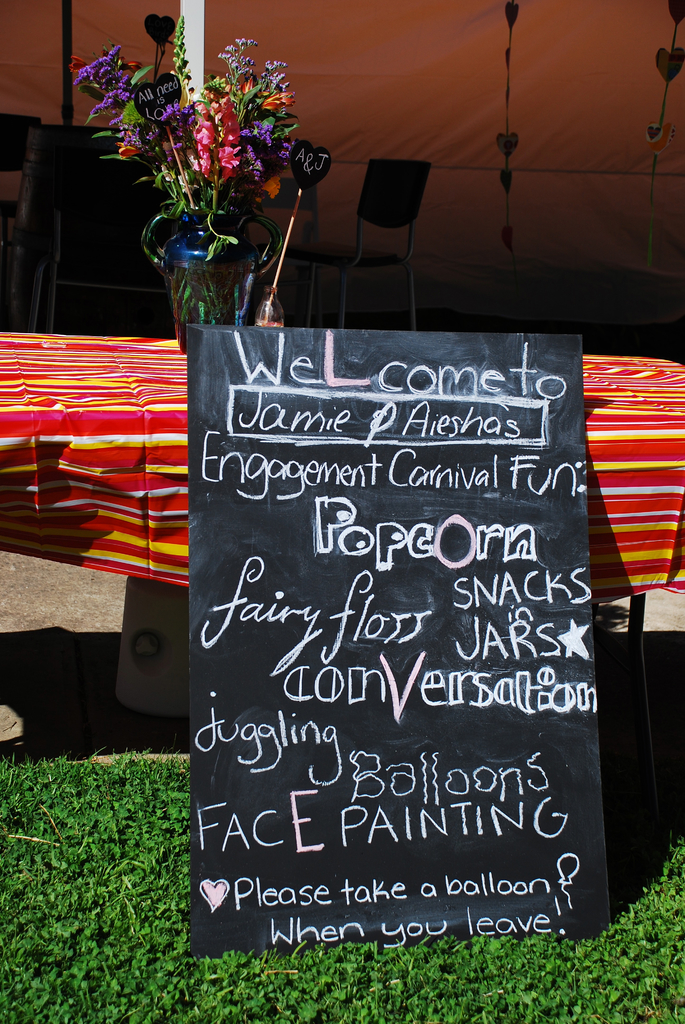 All need
is
Love
A & J
WeLcome to
Jamie & Aieshas
Engagement Carnival Fun:
PopcOrn
fairy floss
SNACKS
in
JARS
conVersation
juggling
Balloons
FACE PAINTING
Please take a balloon
When you leave!